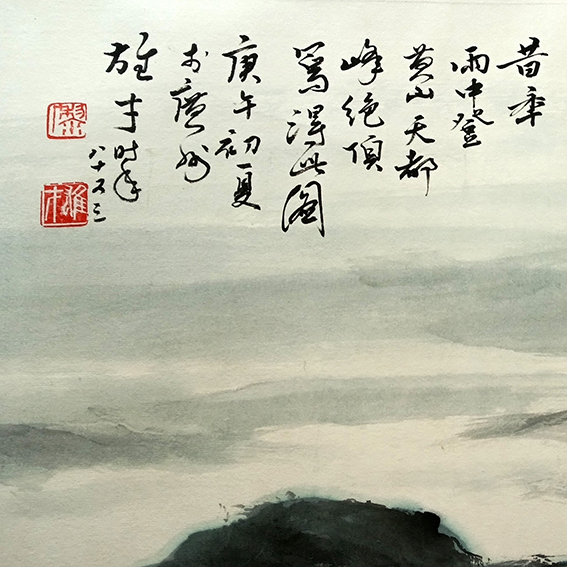 昔年
雨中登
黄山天都
峰绝顶
写得此图
庚午初夏
于广州
雄才时年
八十又三
黎
雄才